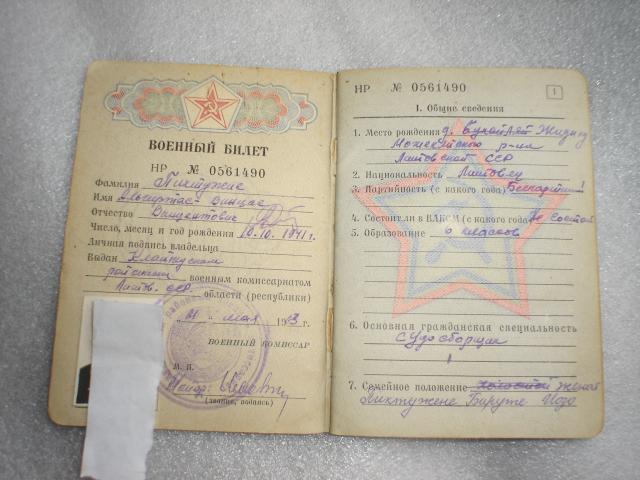 ВОЕННЫЙ БИЛЕТ
НР № 0561490
Фамилия
Имя Винцас
Отчество Винцентович
Число, месяц и год рождения 10.10.1941 г.
Личная подпись владельца
Выдан Клайпедским
районным военным комиссариатом
Литов. ССР области (республики)
" " мая 1963 г.
ВОЕННЫЙ КОМИССАР
М. П.
Майор
(звание, подпись)
НР № 0561490
1
I. Общие сведения
1. Место рождения д.
р-на
Литовской ССР
2. Национальность Литовец
3. Партийность (с какого года) Беспартийный
4. Состоит ли в ВЛКСМ (с какого года) не состоит
5. Образование 6 классов
6. Основная гражданская специальность
Судосборщик
7. Семейное положение холостой женат
Бируте